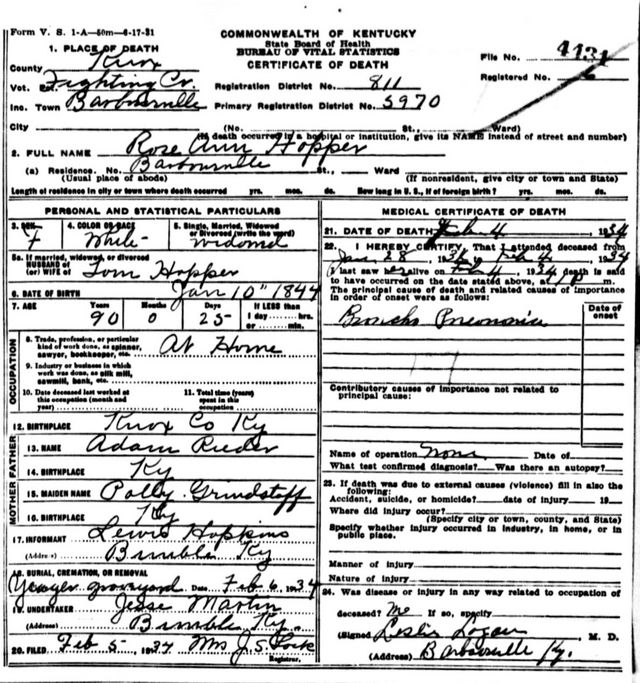 Form V. S. 1-A—50m—6-17-31
COMMONWEALTH OF KENTUCKY
State Board of Health
BUREAU OF VITAL STATISTICS
CERTIFICATE OF DEATH
File No. 4131
Registered No. 6
1. PLACE OF DEATH
County Knox
Vot. Pct. Fighting Cr.
Inc. Town Barbourville
Registration District No. 811
Primary Registration District No. 5970
City (No. St., Ward)
(If death occurred in a hospital or institution, give its NAME instead of street and number)
2. FULL NAME Rose Ann Hopper
(a) Residence. No. Barbourville St., Ward
(Usual place of abode) (If nonresident, give city or town and State)
Length of residence in city or town where death occurred yrs. mos. ds. How long in U. S., if of foreign birth? yrs. mos. ds.
PERSONAL AND STATISTICAL PARTICULARS
3. SEX F
4. COLOR OR RACE White
5. Single, Married, Widowed or Divorced (write the word) widowed
5a. If married, widowed, or divorced
HUSBAND of
(or) WIFE of Tom Hopper
6. DATE OF BIRTH Jan 10" 1844
7. AGE Years 90 Months 0 Days 25 If LESS than
1 day hrs.
or min.
OCCUPATION
8. Trade, profession, or particular
kind of work done, as spinner,
sawyer, bookkeeper, etc. At Home
9. Industry or business in which
work was done, as silk mill,
sawmill, bank, etc.
10. Date deceased last worked at
this occupation (month and
year)
11. Total time (years)
spent in this
occupation
12. BIRTHPLACE Knox Co Ky
FATHER
13. NAME Adam
14. BIRTHPLACE Ky
MOTHER
15. MAIDEN NAME Polly Grindstaff
16. BIRTHPLACE Ky
17. INFORMANT Lewis Hopkins
(Address) Bimble Ky
18. BURIAL, CREMATION, OR REMOVAL
Yeager graveyard Date Feb 6, 1934
19. UNDERTAKER Jesse Martin
(Address) Bimble Ky.
20. FILED Feb 5, 1934 Mrs J. S.
Registrar.
MEDICAL CERTIFICATE OF DEATH
21. DATE OF DEATH Feb. 4, 1934
22. I HEREBY CERTIFY, That I attended deceased from
Jan 28, 1934 Feb 4, 1934
I last saw her alive on Feb 4, 1934 death is said
to have occurred on the date stated above, at m.
The principal cause of death and related causes of importance
in order of onset were as follows:
Date of
onset
Broncho Pneumonia
Contributory causes of importance not related to
principal cause:
Name of operation None Date of
What test confirmed diagnosis? Was there an autopsy?
23. If death was due to external causes (violence) fill in also the
following:
Accident, suicide, or homicide? date of injury 19
Where did injury occur?
(Specify city or town, county, and State)
Specify whether injury occurred in industry, in home, or in
public place.
Manner of injury
Nature of injury
24. Was disease or injury in any way related to occupation of
deceased? No If so, specify
(Signed) Leslie Logan M. D.
(Address) Barbourville Ky.